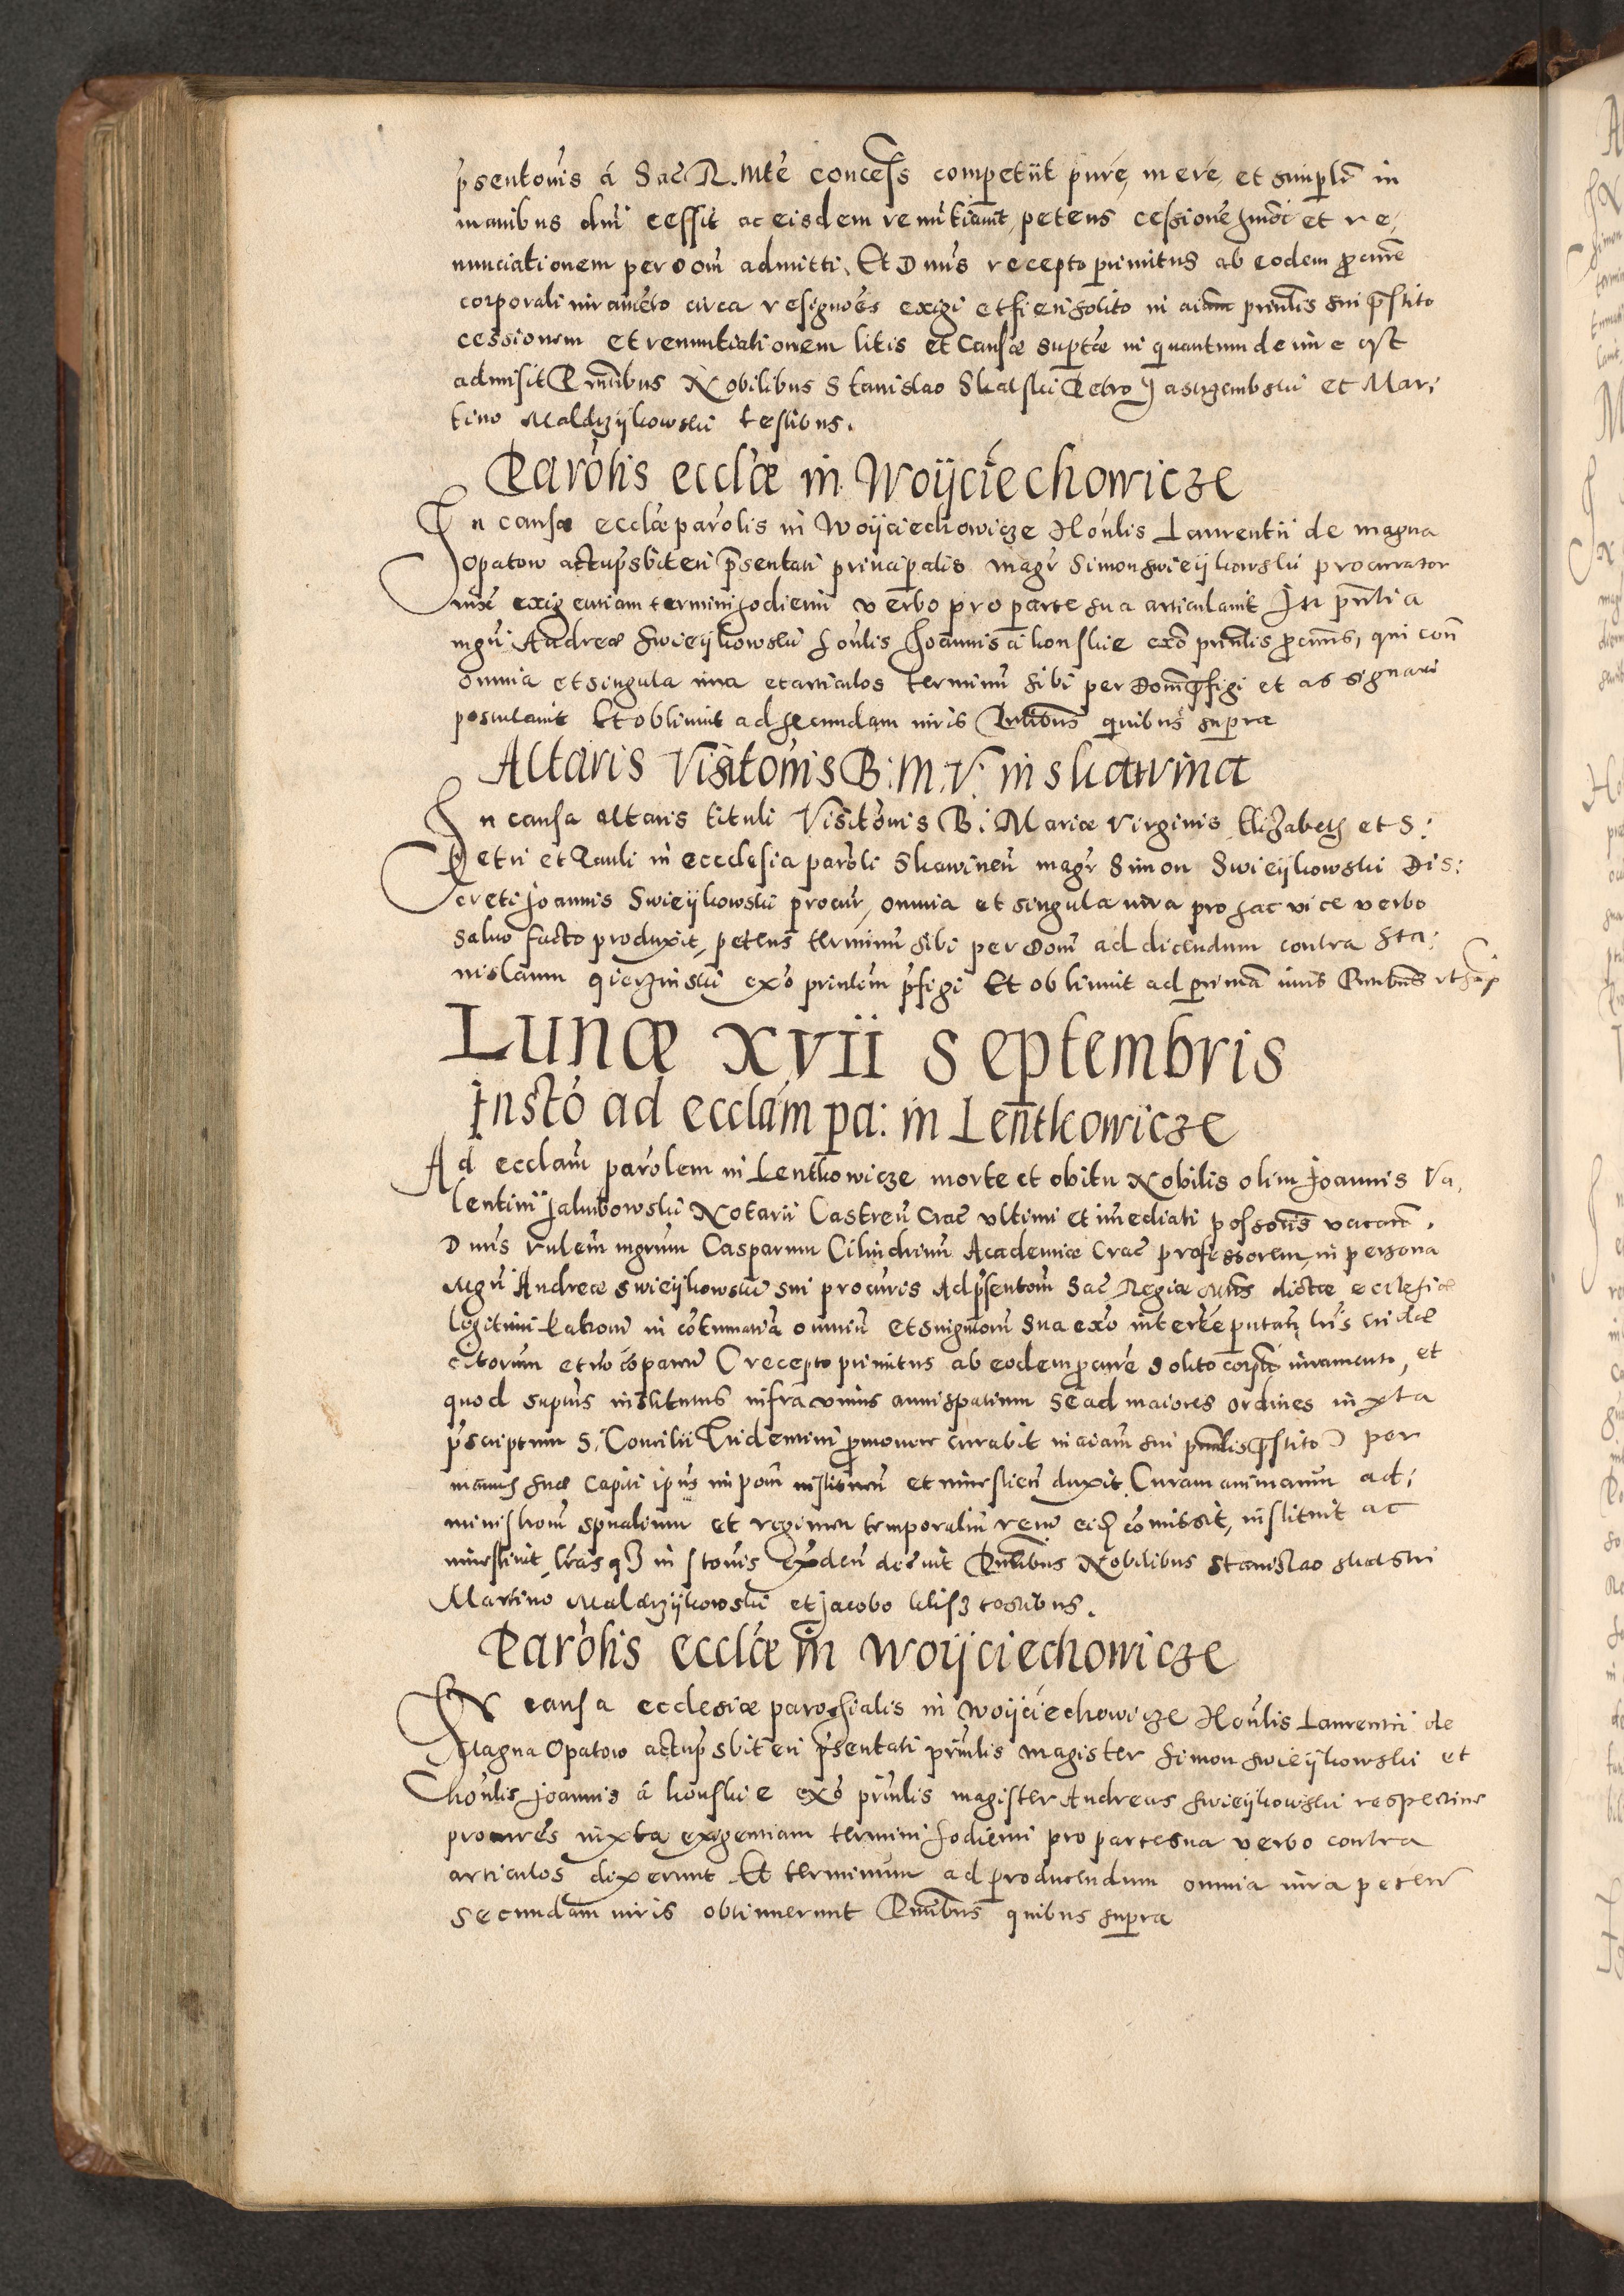 p̃sentoũis á Sac̃ R. Mt̃e concess̃ competiit puré, meré, et simplr̃ in
manibus dni cessit ac eisdem renũtiauit, petens cessionẽ hmõi et re,
nunciationem per D om̃ admitti. Et D nus recepto primitus ab eodem ꝓcur̃e
corporali iuramẽto circa resignoẽs exigi et fieri solito in aiam̃ prinl̃is sui p̃stito
cessionem et renuntiationem litis et causæ sup̃tæ in quantum de iure est
admisit P̃ntibus Nobilibus Stanislao Skarski Petro Jastrzembski et Mar,
tino Maldrzijkowski testibus.
Parõlis ecclæ in Woijciechowicze
In causa ecclæ parõlis in Woijciechowicze Hoñlis Laurentii de magna
Opatow actu p̃sbiteri p̃sentati principalis magr̃ Simon Swieijkowski procurator
iuxᵉ exigentiam termini hodierni verbo pro parte sua articulauit In p̃ntia
mgri Andreæ Swieijkowski hoñlis Joannis á Konskie exõ prinl̃is ꝓcur̃is, qui con̄
omnia et singula iura et articulos terminũ sibi per Dom̃ p̃figi et assignari
postulauit Et obtinuit ad secundam iuris P̃ntibus quibus supra
Altaris Visitõnis B: M. V: in Skawina
In causa altaris tituli Visitõnis B: Mariæ Virginis Elizabeth et S:
Petri et Pauli in ecclesia parõli Skawineñ magr̃ Simon Swieijkowski Dis:
creti Joannis Swieijkowski procur̃, omnia et singula iura pro hac vice verbo
saluo facto produxit, petens terminũ sibi per Dom̃ ad dicendum contra Sta:
nislaum exõ prinlem p̃figi Et obtinuit ad primã iuris P̃ntibus vt sup̃
Lunæ xvii Septembris
Instõ ad ecclam pa: in Lentkowicze
Ad ecclam parõlem in Lentkowicze morte et obitu Nobilis olim Joannis Va,
lentini Jakubowski Notarii Castreñ Crac̃ vltimi et im̃ediati possoris vacan̄.
D nus mgrum Casparum Cilindrium Academiæ Crac̃ professorem, in persona
Mgri Andreæ Swieijkowski sui procur̃is Ad p̃sentom̃ Sac̃ Regiæ Mt̃is dictæ ecclesiæ
legitimi patroni in cõtumatiã omniũ et singulorũ sua exõ interẽe putan̄ lr̃is cridæ
citorum et nõ cõparen̄ (recepto primitus ab eodem ꝓcur̃e solito corp̃li iuramento, et
quod supius institutus infra vnius anni spatium se ad maiores ordines iuxta
p̃scriptum S. Concilii Tridentini ꝓmouer̃ curabit in aiam̃ sui prinl̃is p̃stito) per
manus suæ capiti ip̃ius impom̃ instituen̄ et inuestien̄ duxit Curam animarum ad,
ministrom̃ spualium et regimen temporaliũ rerũ eiđ cõmissit, instituit ac
inuestiuit, lr̃as qꝫ in stonis exden̄ decreuit P̃ntibus Nobilibus Stanislao Skarski
Martino Maldrzijkowski et Jacobo testibus.
Parõlis ecclæ in Woijciechowicze
IN causa ecclesiæ parochialis in Woijciechowicze Hoñlis Laurentii de
Magna Opatow actu p̃sbiteri p̃sentati prinl̃is magister Simon Swieijkowski et
hoñlis Joannis á Konskie exõ prinl̃is magister Andreas Swieijkowski respectiue
procures iuxta exigentiam termini hodierni pro parte sua verbo contra
articulos dixerunt Et terminum ad producendum omnia iura peten̄
secundam iuris obtinuerunt P̃ntibus quibus supra